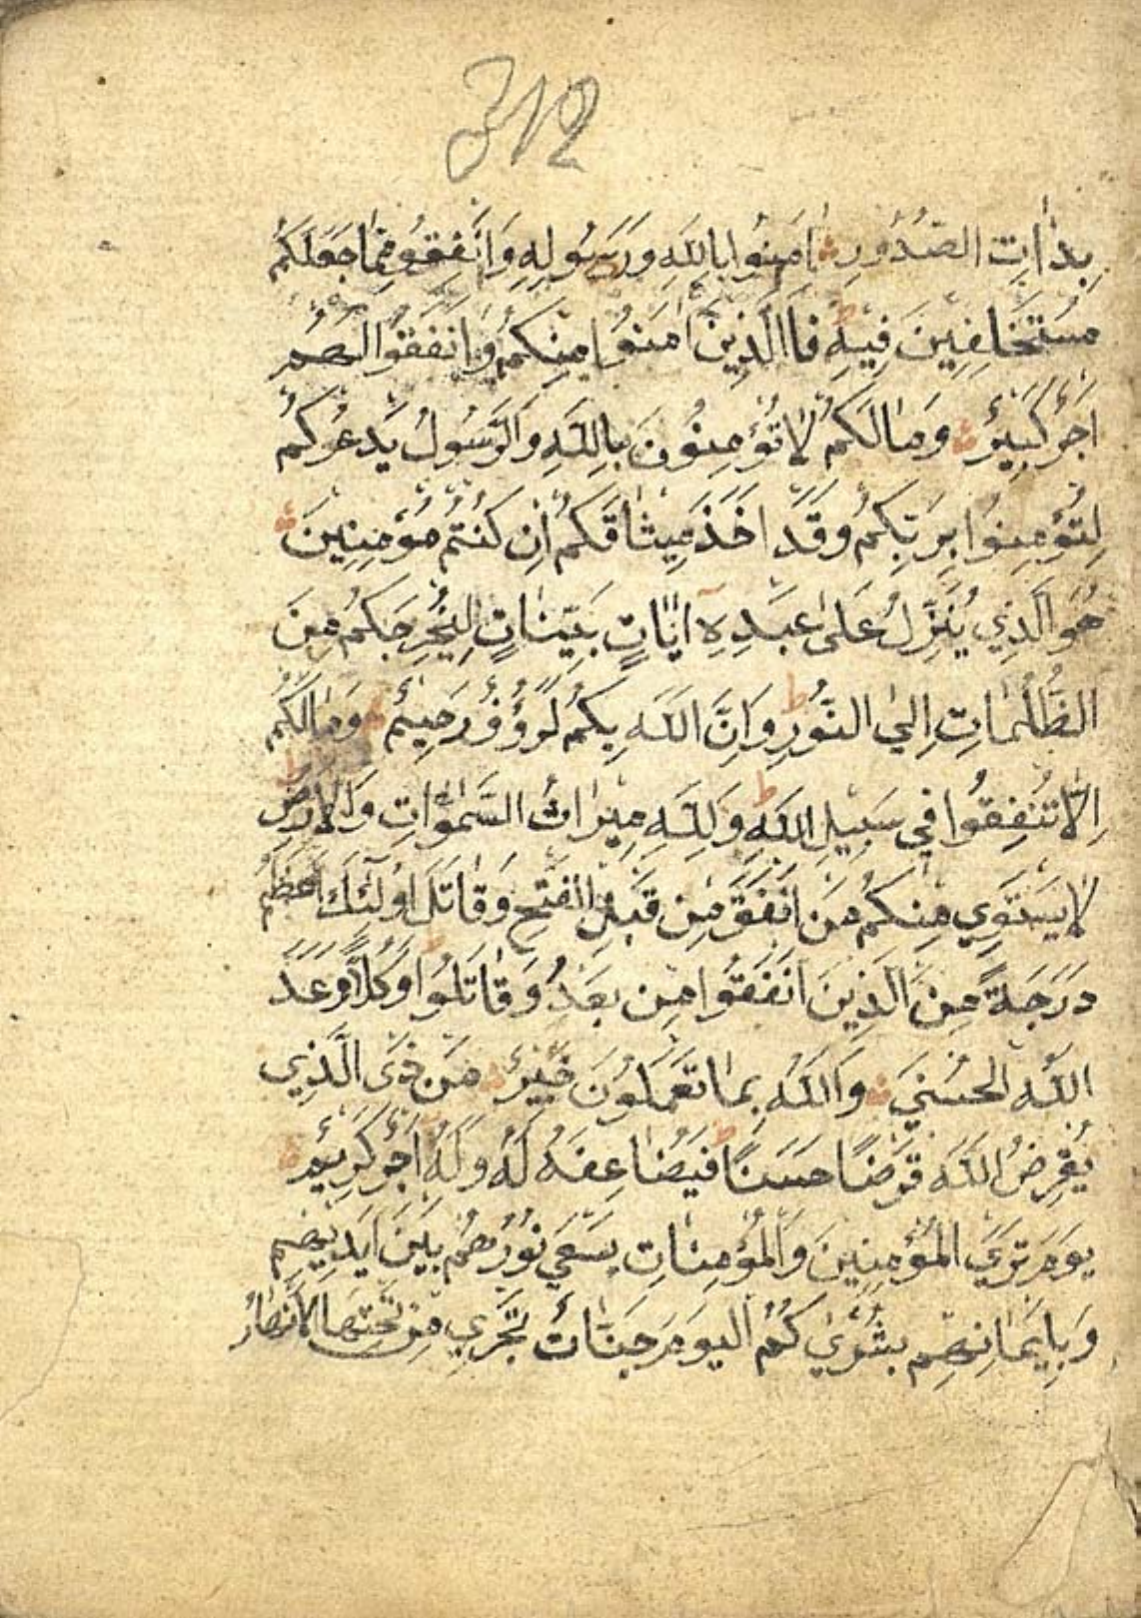 312
بِذَاتِ الصُّدُورِ اٰمِنُوا بِاللَّهِ وَرَسُولِهِ وَاَنْفِقُو مِمَّا جَعَلَكُمْ
مُسْتَخْلَفِينَ فِيهِ ط فَاالَّذِينَ اٰمَنُوا مِنْكُمْ وَاَنْفَقُوا لَهُمْ
اَجْرٌ كَبِيرٌ وَمَا لَكُمْ لَا تُؤْمِنُونَ بِاللَّهِ وَالرَّسُولُ يَدْعُوكُمْ
لِتُؤْمِنُوا بِرَبِّكُمْ وَقَدْ اَخَذَ مِيثَاقَكُمْ اِنْ كُنْتُمْ مُؤْمِنِينَ
هُوَ الَّذِي يُنَزِّلُ عَلَى عَبْدِهِ اٰيَاتٍ بَيِّنَاتٍ لِيُخْرِجَكُمْ مِنَ
الظُّلُمَاتِ اِلَي النُّورِ ط وَاِنَّ اللَّهَ بِكُمْ لَرَؤُفٌ رَحِيمٌ وَمَا لَكُمْ
اِلَّا تُنْفِقُوا فِي سَبِيلِ اللَّهِ ط وَلِلَّهِ مِيرَاثُ السَّمٰوَاتِ وَالْاَرْضِ ط
لَا يَسْتَوِي مِنْكُمْ مَنْ اَنْفَقَ مِنْ قَبْلِ الْفَتْحِ وَقَاتَلَ اُولٰئِكَ اَعْظَمُ
دَرَجَةً مِنَ الَّذِينَ اَنْفَقُوا مِنْ بَعْدُ وَقَاتَلُوا ط وَكُلًّا وَعَدَ
اللَّهُ الْحُسْنَي وَاللَّهُ بِمَا تَعْمَلُونَ خَبِيرٌ مَنْ ذَي الَّذِي
يُقْرِضُ اللَّهَ قَرْضًا حَسَنًا ط فَيُضَاعِفَهُ لَهُ وَلَهُ اَجْرٌ كَرِيمٌ
يَوْمَ تَرَي الْمُؤْمِنِينَ وَالْمُؤْمِنَاتِ يَسْعَي نُورُهُمْ بَيْنَ اَيْدِيهِمْ
وَبِاَيْمَانِهِمْ بُشْرٰي كُمُ الْيَوْمَ جَنَّاتٌ تَجْرِي مِنْ تَحْتِهَا الْاَنْهَارُ